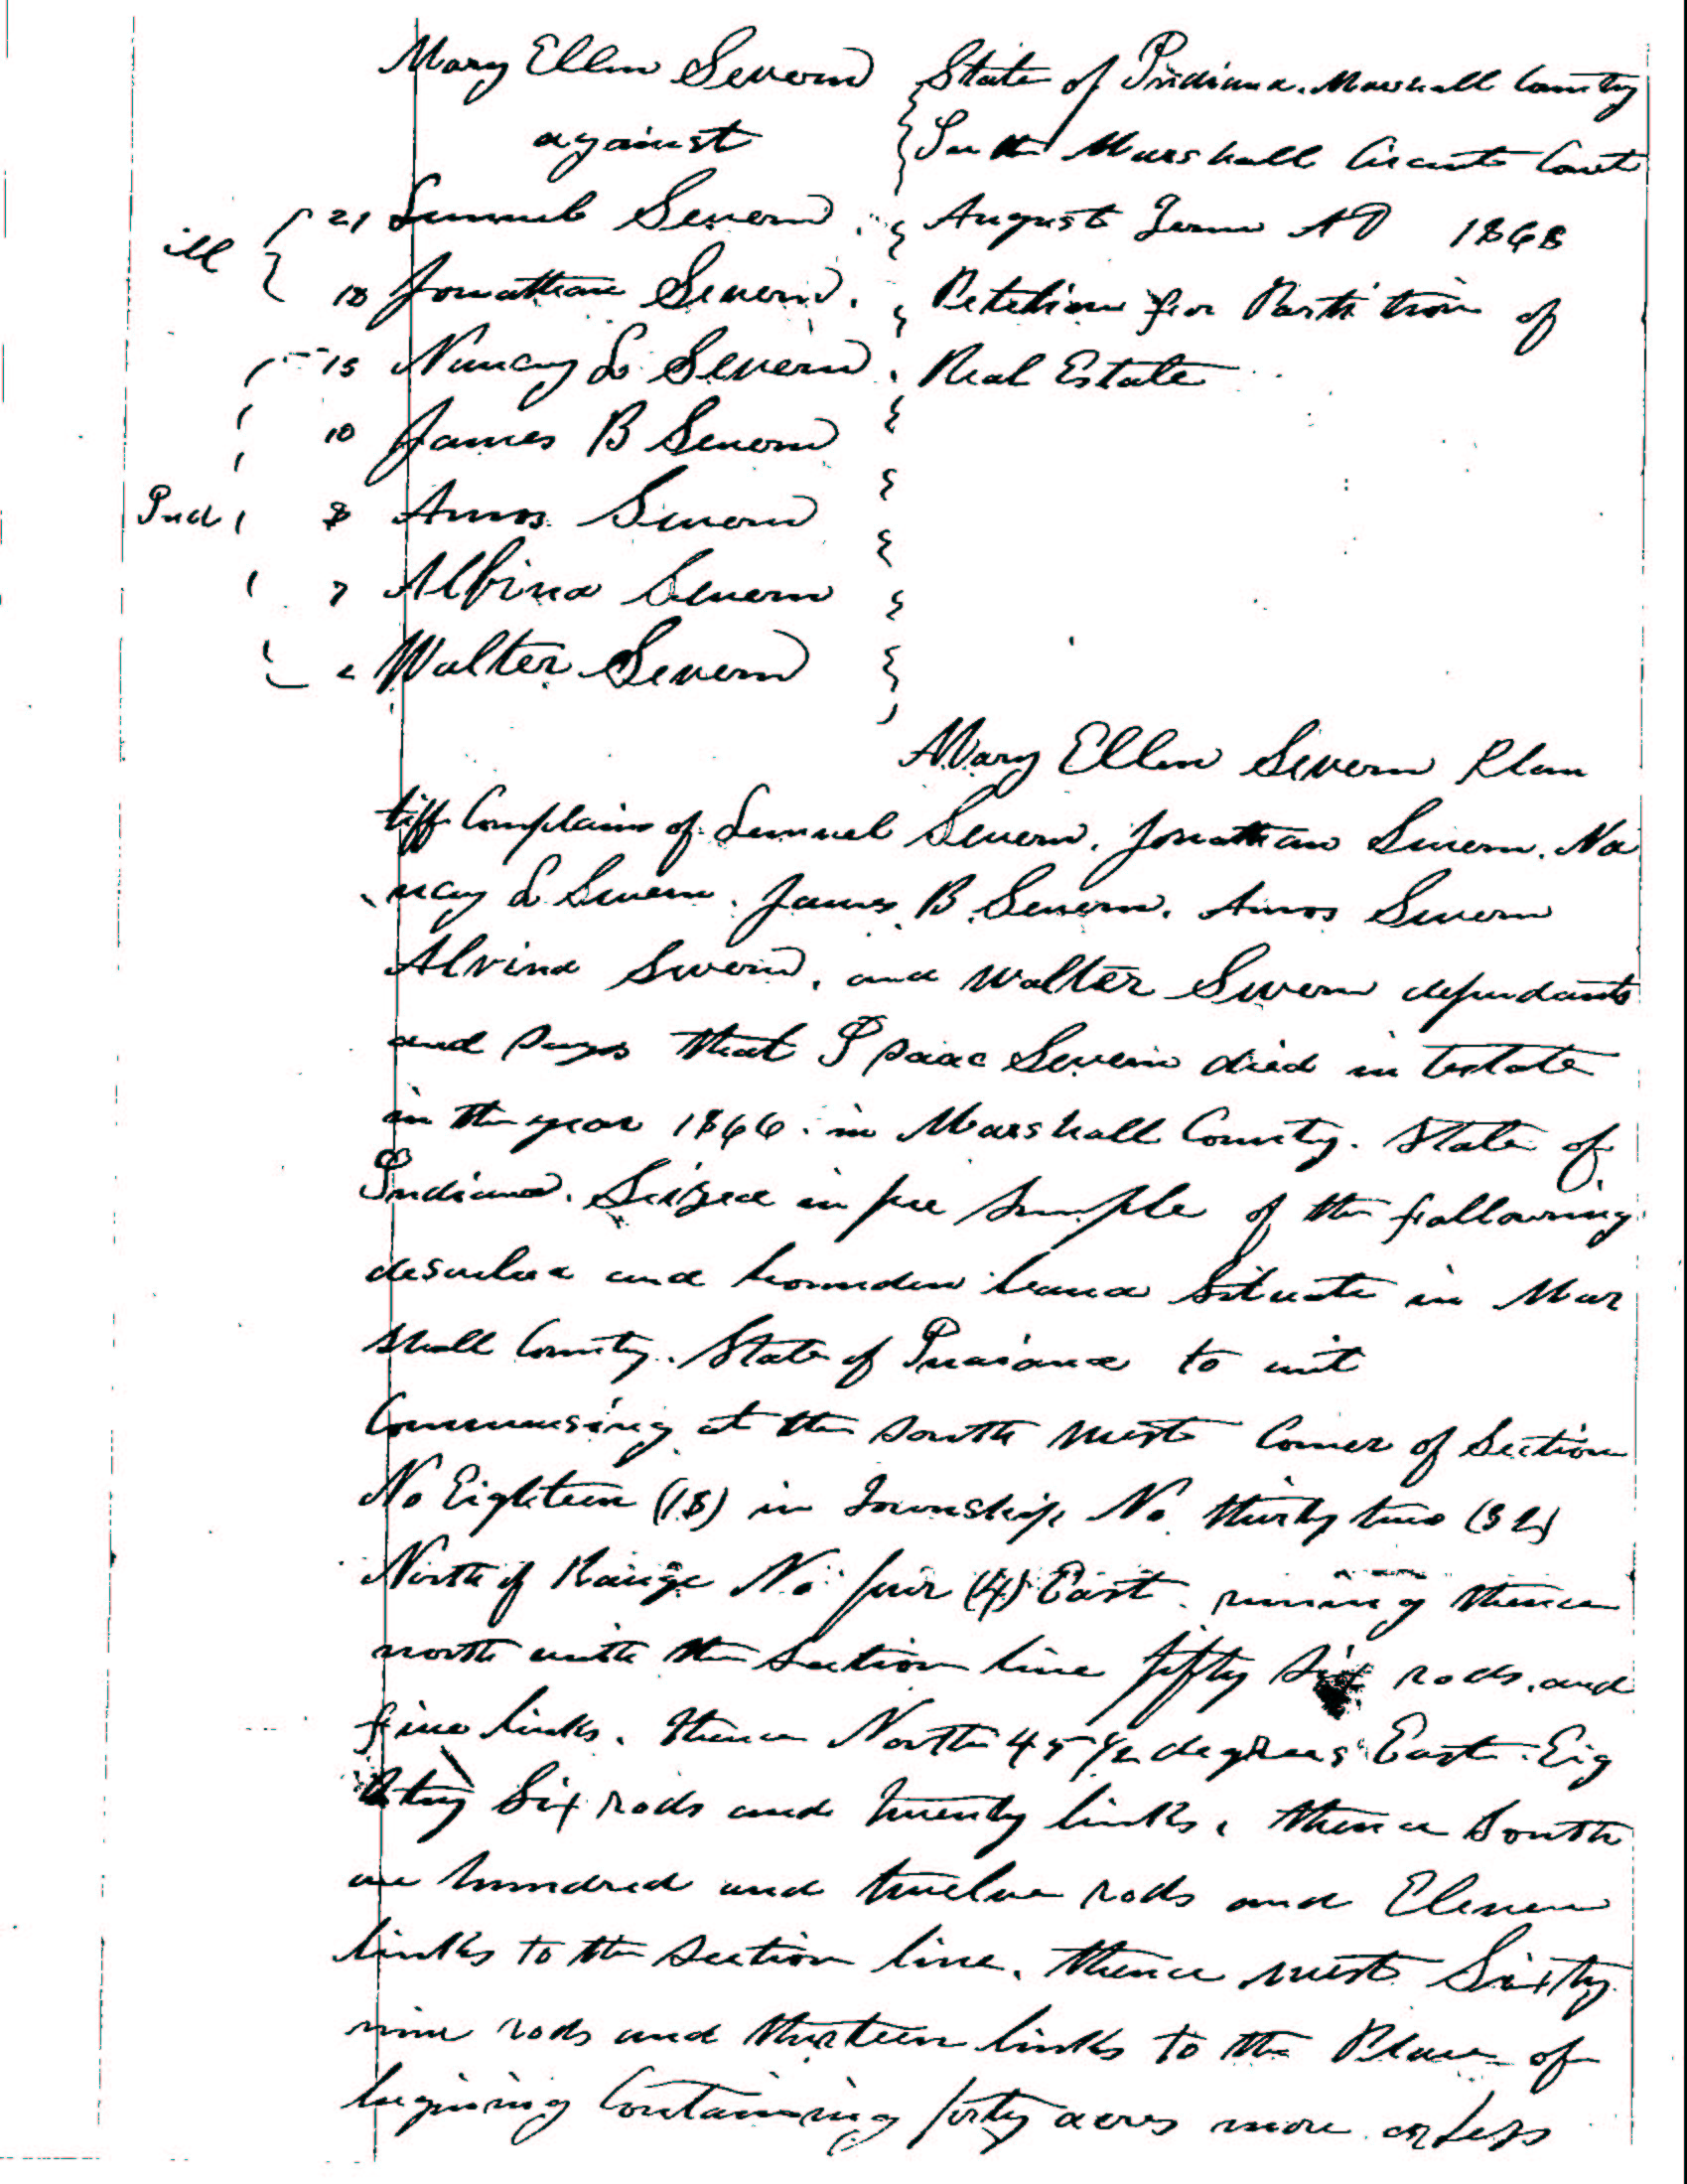 Mary Ellen Severn
against
21 Lemuel Severn
ill
18 Jonathan Severn.
15 Nancy L Severn
10 James B Severn
Ind 8 Amos Severn
7 Albina Severn
2 Walter Severn
State of Indiana. Marshall County
In the Marshall Circuit Court
August Term AD 1868
Petition for Partition of
Real Estate
Mary Ellen Severn Plain
tiff Complains of Lemuel Severn. Jonathan Severn. Na
ncy L Severn. James B. Severn. Amos Severn
Alvina Severn, and Walter Severn defendants
and says that Isaac Severn died in testate
in the year 1866 in Marshall County. State of
Indiana. Seized in fee Simple of the following
described and bounden land Situate in Mar
shall County. State of Indiana to wit
Commensing at the South West Corner of Section
No Eighteen (18) in Township No thirty two (32)
North of Range No four (4) East. runing thence
north with the section line fifty six rods. and
five links. thence North 45 1/2 degrees East. Eig
hty Six rods and twenty links, thence South
one hundred and twelve rods and Eleven
links to the section line. thence west Sixty
nine rods and thirteen links to the Place of
begining Containing forty acres more or less